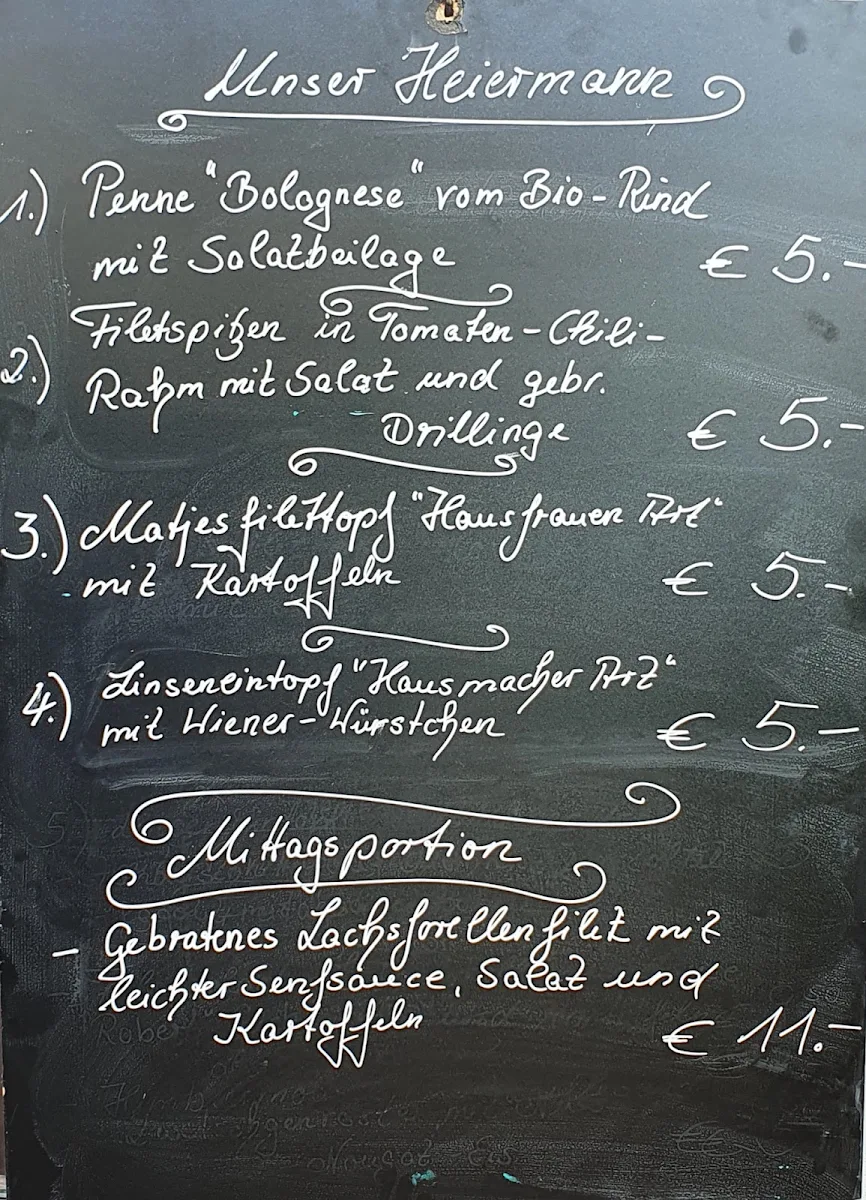 Unser Heiermann
1.) Penne "Bolognese" vom Bio-Rind
mit Salatbeilage € 5.-
2.) Filetspitzen in Tomaten-Chili-
Rahm mit Salat und gebr.
Drillinge € 5.-
3.) Matjesfilettopf "Hausfrauen Art"
mit Kartoffeln € 5.-
4.) Linseneintopf "Hausmacher Art"
mit Wiener-Würstchen € 5.-
Mittagsportion
- Gebratenes Lachsforellenfilet mit
leichter Senfsauce, Salat und
Kartoffeln € 11.-